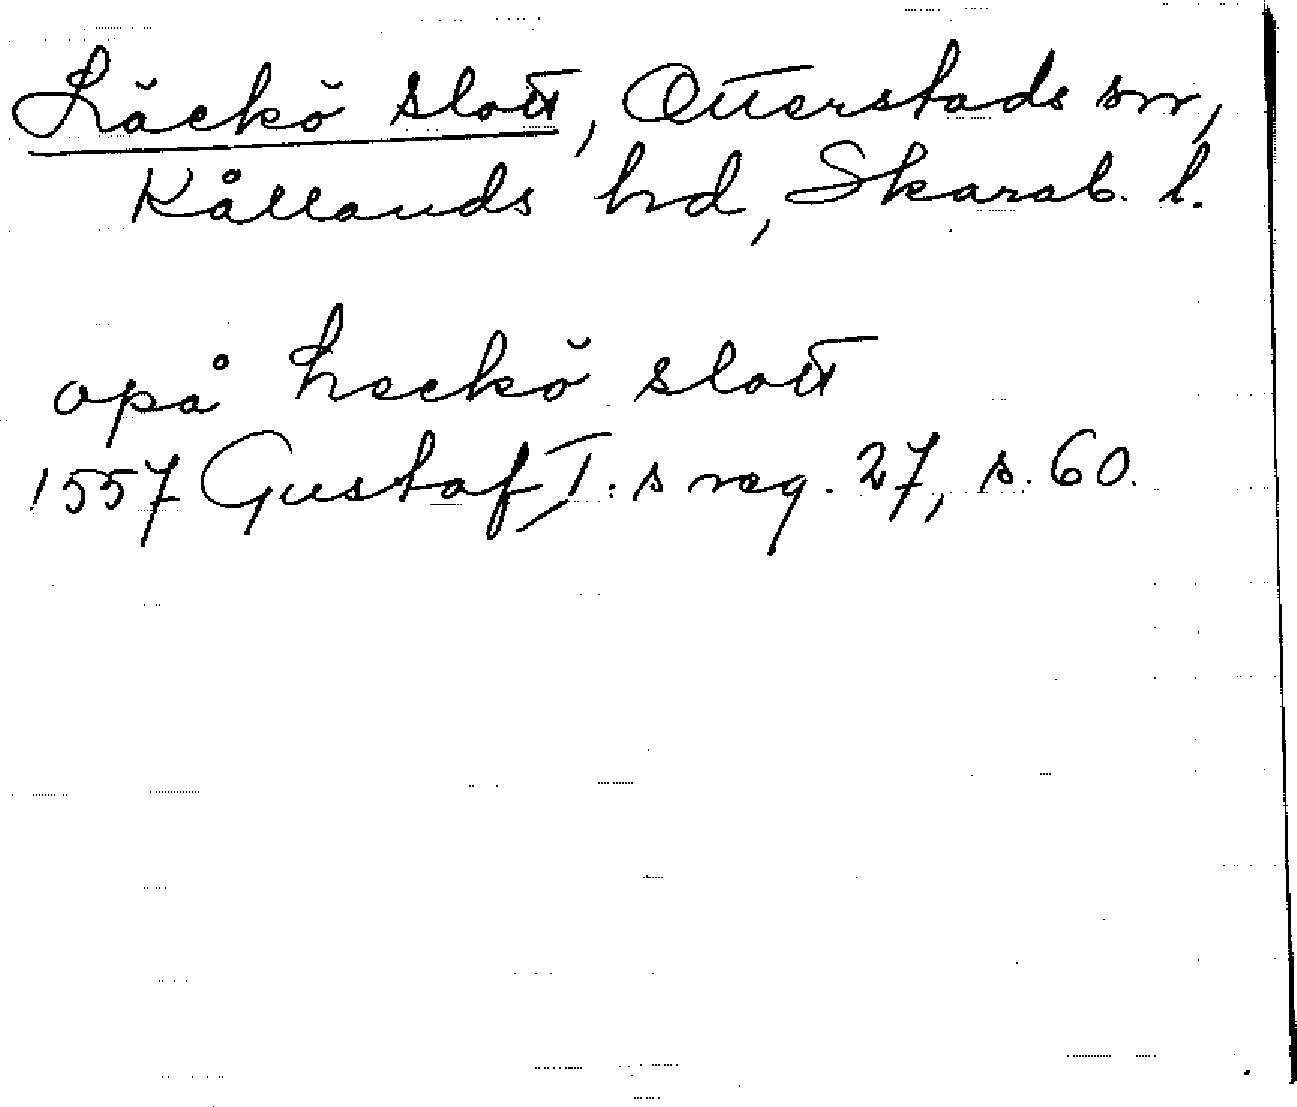 Läckö slott, Otterstads sn,
Kållands hd, Skarab. l.
opå Leckö slott
1557 Gustaf I:s reg. 27, s. 60.